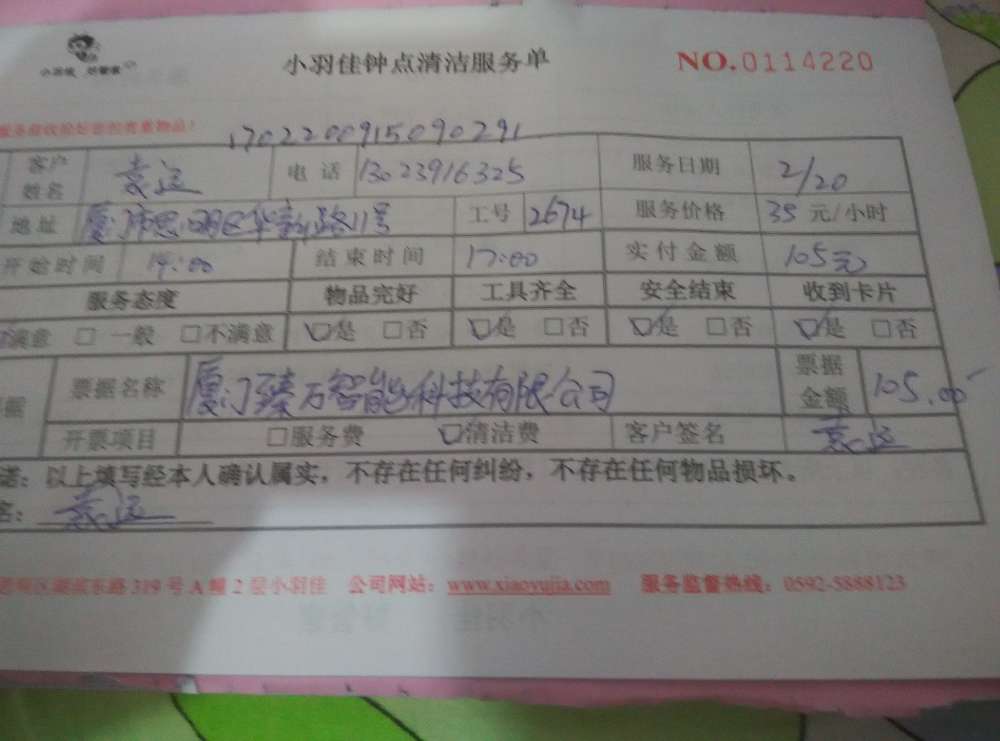 小羽佳钟点清洁服务单 NO.0114220
小羽佳
1702200915090291
客户姓名 袁运 电话 13023916325 服务日期 2/20
地址 厦门市思明区华新路11号 工号 2674 服务价格 35 元/小时
开始时间 14:00 结束时间 17:00 实付金额 105元
服务态度 物品完好 工具齐全 安全结束 收到卡片
满意 □ 一般 □不满意 □是 □否 □是 □否 □是 □否 □是 □否
票据名称 厦门臻万智能科技有限公司 票据金额 105.00
开票项目 □服务费 □清洁费 客户签名 袁运
诺：以上填写经本人确认属实，不存在任何纠纷，不存在任何物品损坏。
名：袁运
东路319号A幢2层小羽佳 公司网站：www.xiaoyujia.com 服务监督热线：0592-5888123